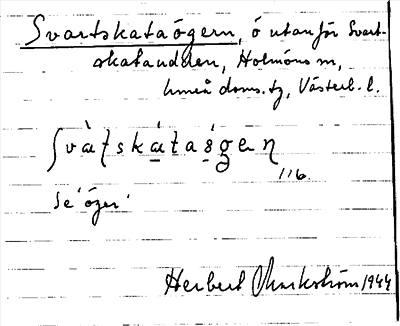 Svartskataögern, ö utanför Svart-
skataudden, Holmöns m,
Umeå doms. tg, Västerb. l.
ʃvàʈskátaögeɳ
116.
se 'öger'
Herbert Markström 1944